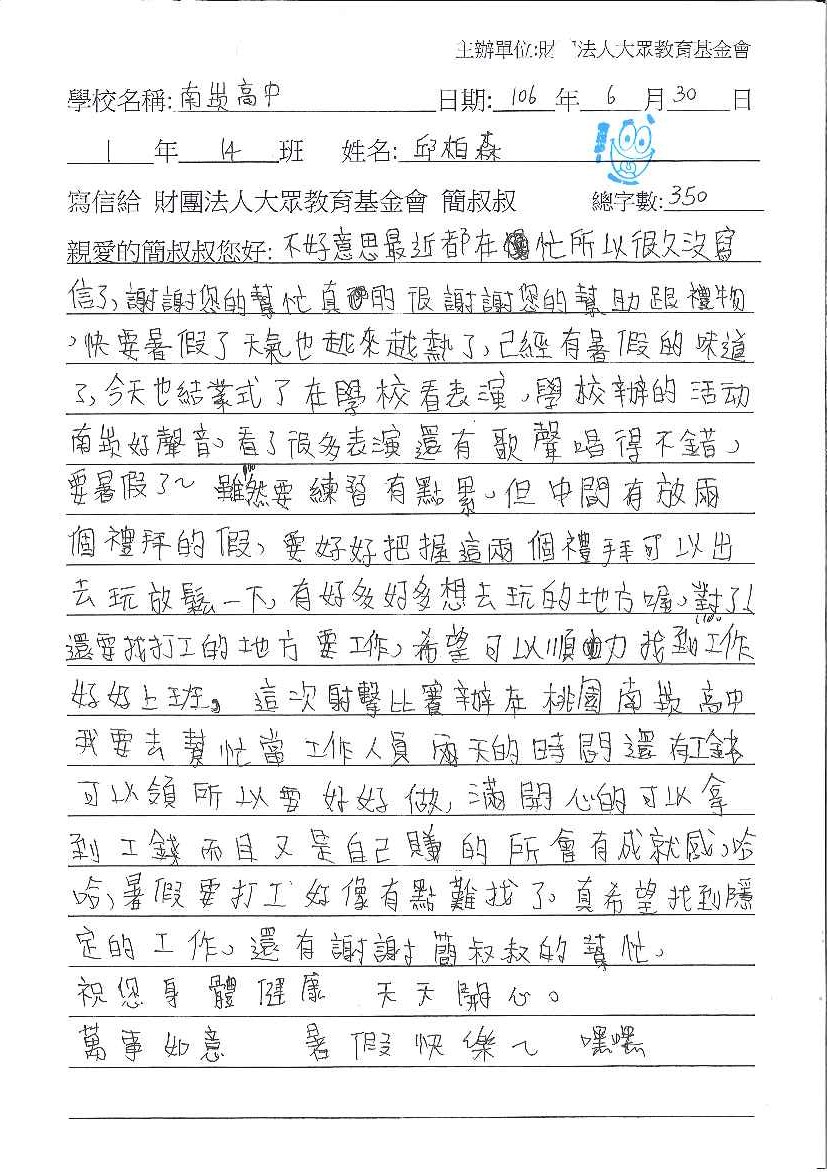 主辦單位:財 法人大眾教育基金會
學校名稱: 南崁高中 日期: 106 年 6 月 30 日
1 年 14 班 姓名: 邱柏森
寫信給 財團法人大眾教育基金會 簡叔叔 總字數: 350
親愛的簡叔叔您好: 不好意思最近都在忙所以很久沒寫
信了,謝謝您的幫忙真的很謝謝您的幫助跟禮物
,快要暑假了天氣也越來越熱了,已經有暑假的味道
了,今天也結業式了在學校看表演,學校辦的活动
南崁好聲音,看了很多表演還有歌聲唱得不錯,
要暑假了~ 雖然要練習有點累,但中間有放兩
個禮拜的假,要好好把握這兩個禮拜可以出
去玩放鬆一下,有好多好多想去玩的地方喔,對了!
還要找打工的地方要工作,希望可以順力找到工作
好好上班。 這次射擊比賽辦在桃園南崁高中
我要去幫忙當工作人員兩天的時間還有工錢
可以領所以要好好做,滿開心的可以拿
到工錢而且又是自己賺的所會有成就感,哈
哈,暑假要打工好像有點難找了,真希望找到隱
定的工作,還有謝謝簡叔叔的幫忙,
祝您身體健康 天天開心。
萬事如意 暑假快樂~ 嘿嘿